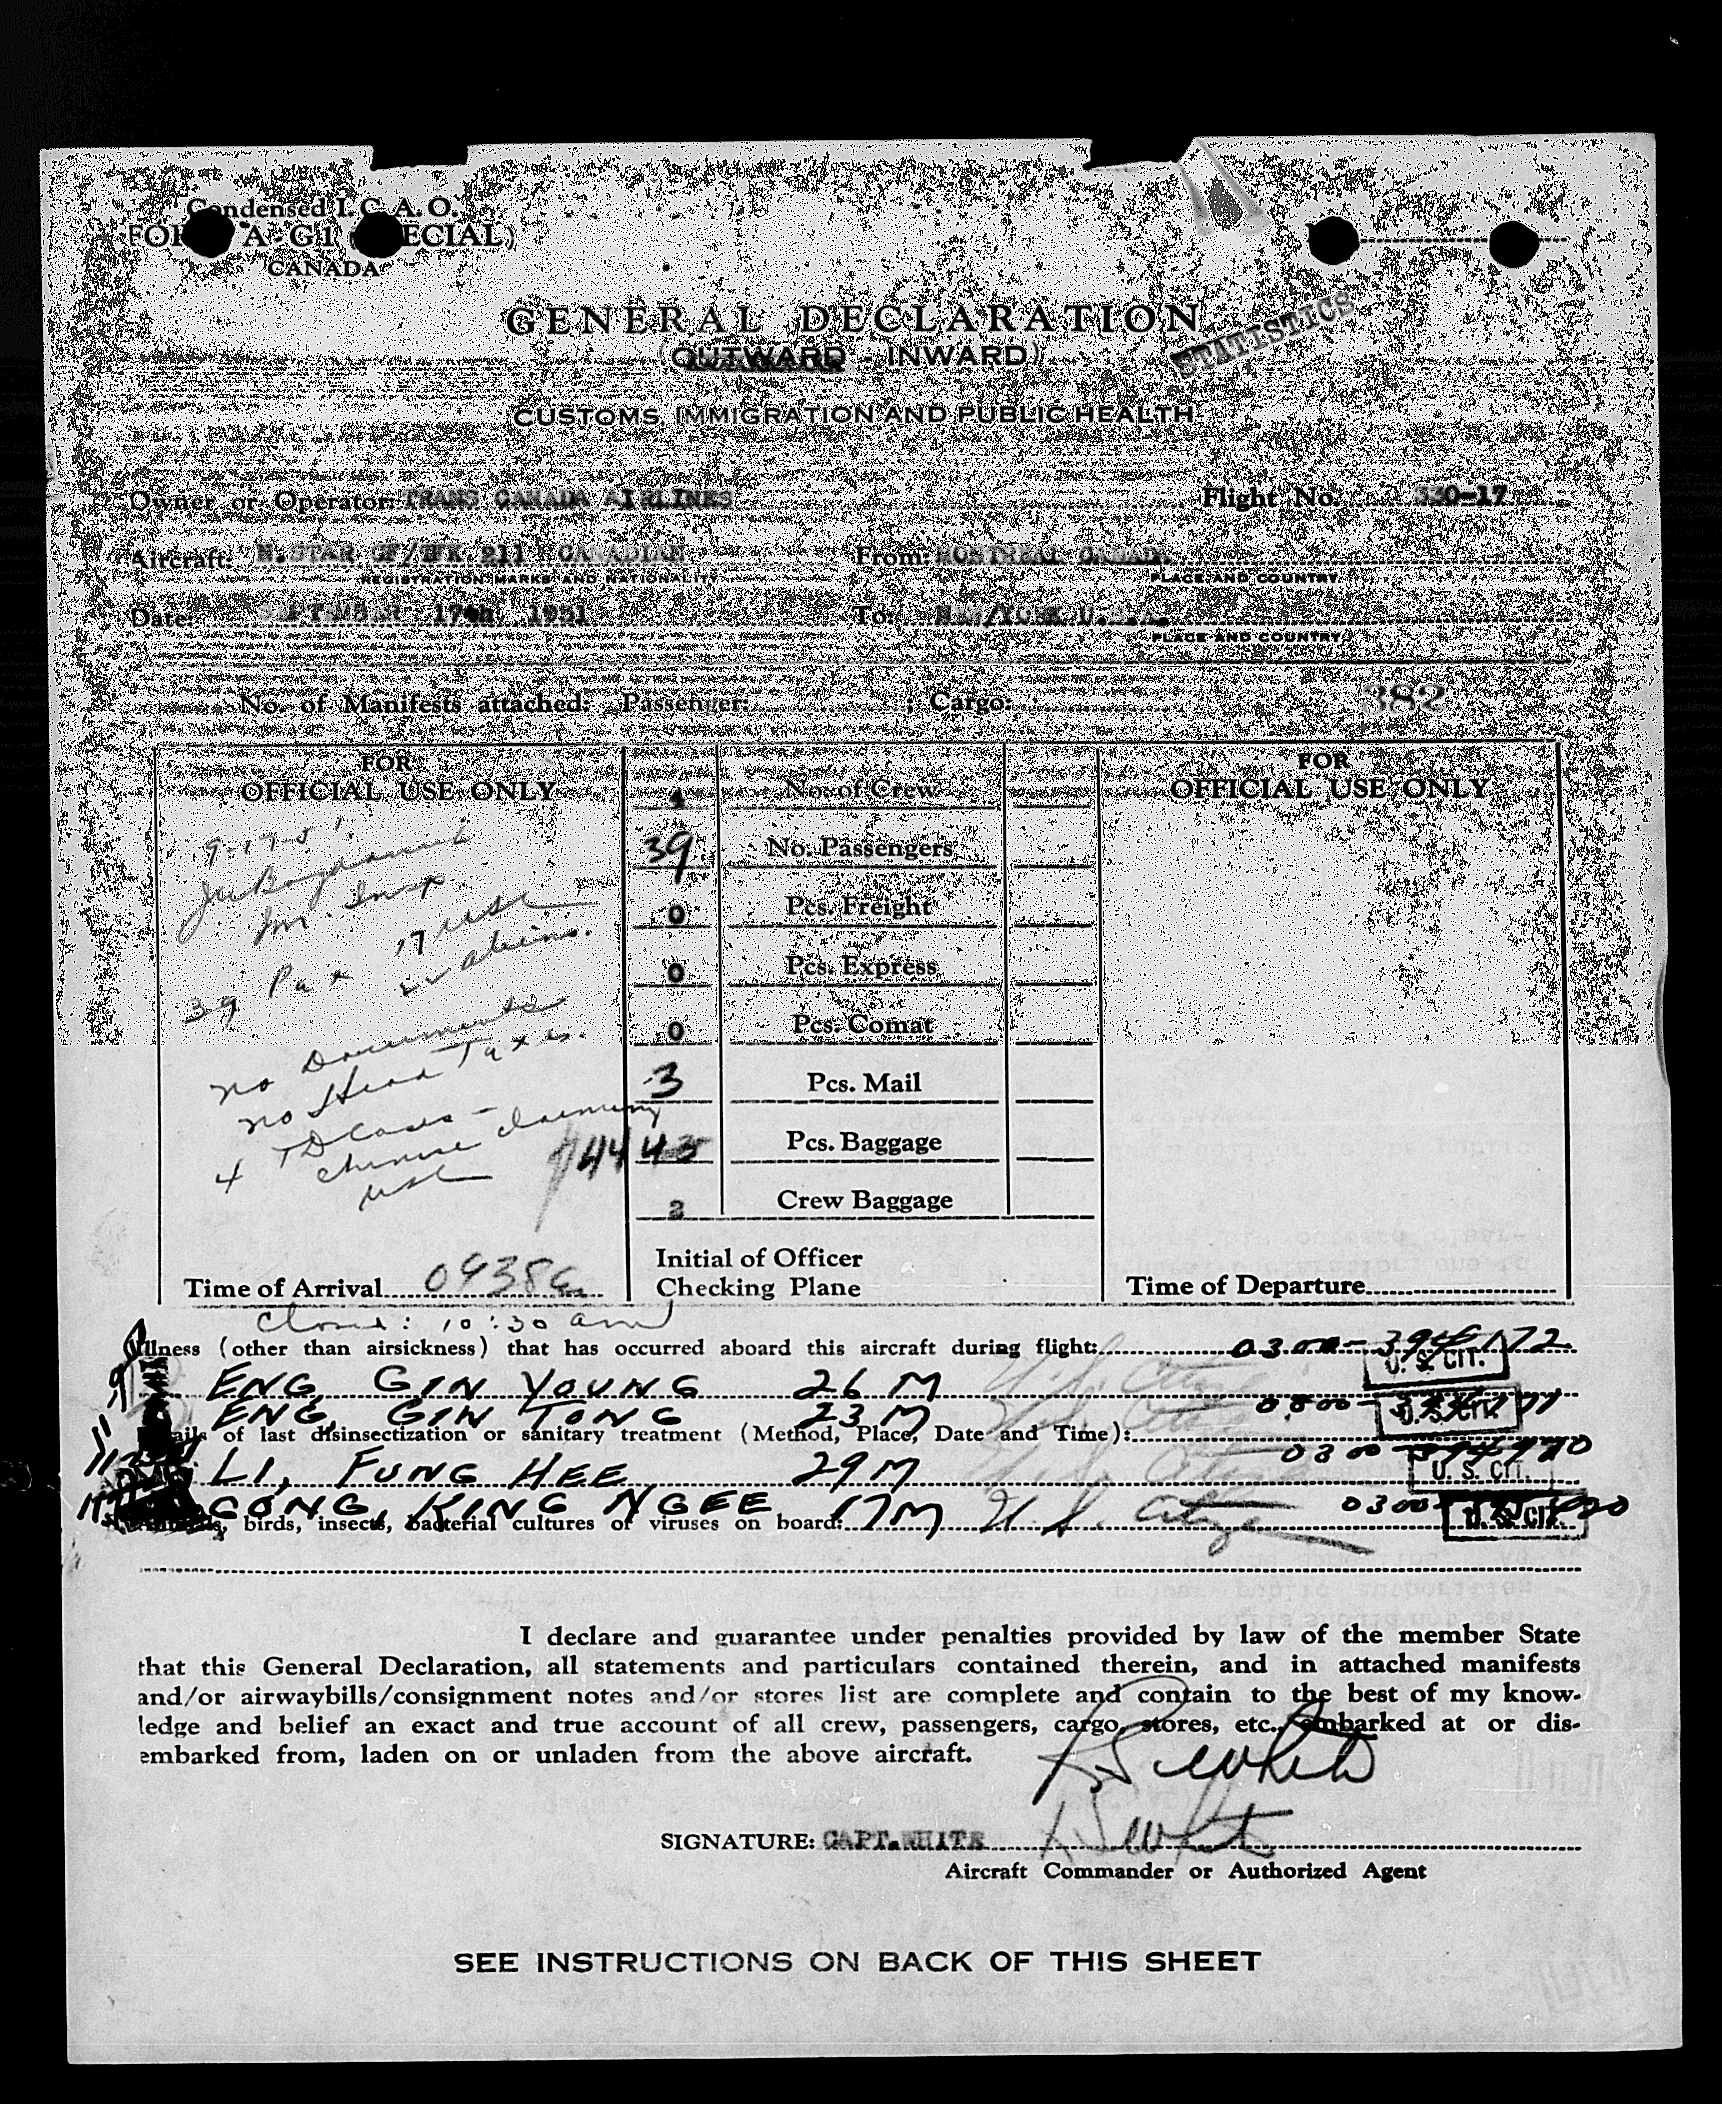 Condensed I. C. A. O.
A-G1
CANADA
GENERAL DECLARATION
(OUTWARD - INWARD)
STATISTICS
CUSTOMS, IMMIGRATION AND PUBLIC HEALTH
Owner or Operator: TRANS CANADA AIRLINES Flight No. 330-17
Aircraft: N.STAR CF/TFK 211 CANADIAN From: MONTREAL CANADA
REGISTRATION MARKS AND NATIONALITY PLACE AND COUNTRY
Date: SEPTEMBER 17th 1951 To: NEW/YORK U.
PLACE AND COUNTRY
No. of Manifests attached: Passenger: ; Cargo: 382
FOR OFFICIAL USE ONLY
9-17-51
Im Insp
39 Pax 17 USC
22 aliens.
No Documents
No Head Taxes.
4 TD Cases - Chinese claiming
USC
Time of Arrival 0938
Closed: 10:30 am
4 No. of Crew
39 No. Passengers
0 Pcs. Freight
0 Pcs. Express
0 Pcs. Comat
3 Pcs. Mail
44 43 Pcs. Baggage
2 Crew Baggage
Initial of Officer
Checking Plane
FOR OFFICIAL USE ONLY
Time of Departure
Illness (other than airsickness) that has occurred aboard this aircraft during flight: 0300-
U. S. CIT.
ENG, GIN YOUNG 26 M U.S. Citizen
ENG, GIN TONG 23 M U.S. Citizen 0300-
U. S. CIT.
of last disinsectization or sanitary treatment (Method, Place, Date and Time):
LI, FUNG HEE 29 M U.S. Citizen 0300-
U. S. CIT.
GONG, KING NGEE 17 M U.S. Citizen 0300-
U. S. CIT.
birds, insects, bacterial cultures or viruses on board:
I declare and guarantee under penalties provided by law of the member State
that this General Declaration, all statements and particulars contained therein, and in attached manifests
and/or airwaybills/consignment notes and/or stores list are complete and contain to the best of my know-
ledge and belief an exact and true account of all crew, passengers, cargo, stores, etc., embarked at or dis-
embarked from, laden on or unladen from the above aircraft.
SIGNATURE: CAPT. WHITE
Aircraft Commander or Authorized Agent
SEE INSTRUCTIONS ON BACK OF THIS SHEET